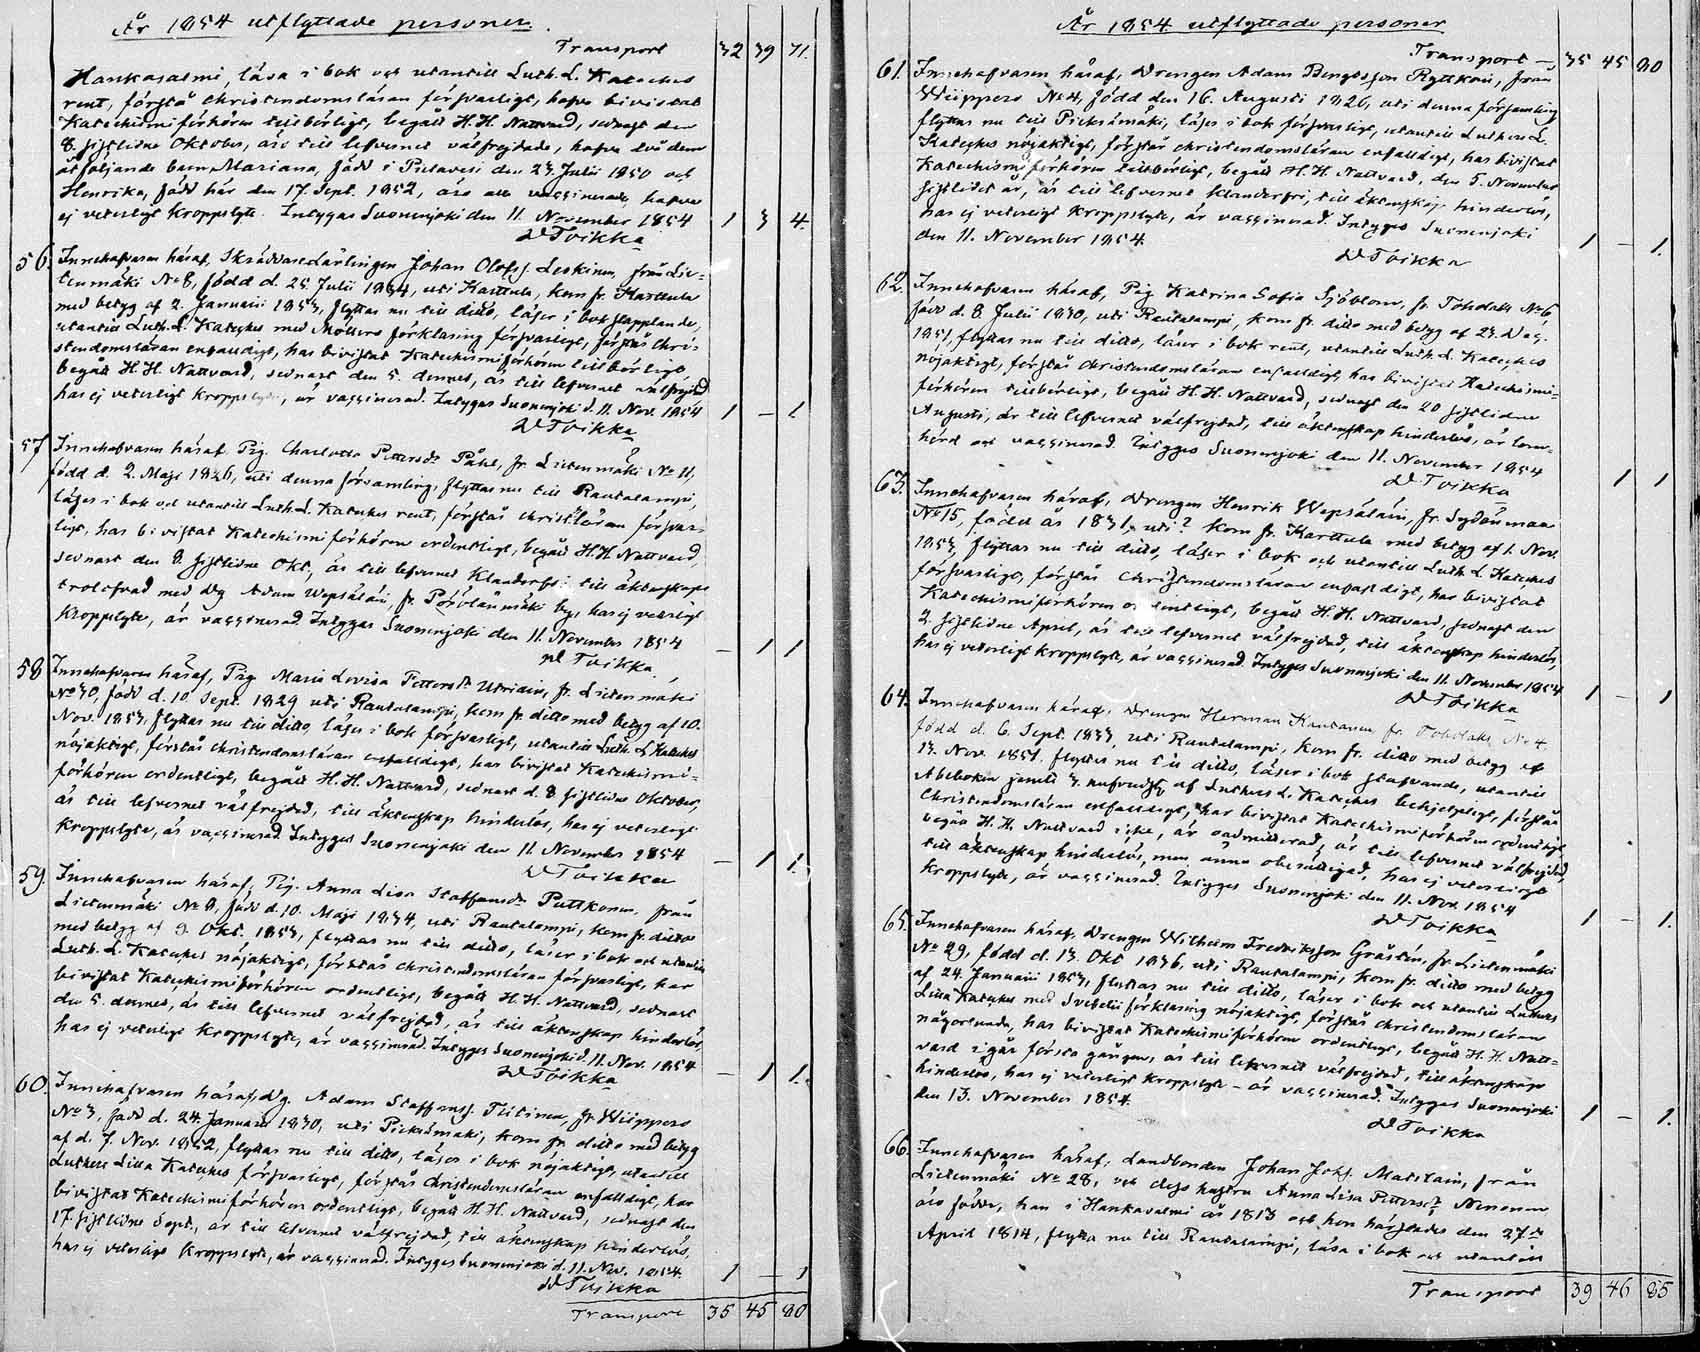 År 1854 utflyttade personer.
Transport 32 39 71.
Hankasalmi, läsa i bok och utantill Luth. L. Kateches
rent, förstå christendomsläran försvarligt, hafva bivistat
Katechismiförhören tillbörligt, begått H. H. Nattvard, sednast den
8. sistlidne Oktober, äro till lefvernet välfrejdade, hafva två dem
åtföljande barn, Mariana, född i Pielavesi den 23. Julii 1850 och
Henrika, född här den 17. Sept. 1852, äro alla vaccinerade, hafva
ej veterligt kroppslyte. Intygas Suonenjoki den 11. November 1854 1 3 4.
Toikka
56. Innehafvaren häraf, Skräddarelärlingen Johan Olofss. Leskinen, från Lie-
tenmäki No 8, född d. 25 Julii 1834, uti Karttula, kom fr. Karttula
med betyg af 2. Januarii 1853, flyttas nu till ditto, läser i bok stapplande,
utantill Luth. L. Kateches med Möllers förklaring försvarligt, förstår chri-
stendomsläran enfalldigt, har bivistat Katechismiförhören tillbörligt,
begått H. H. Nattvard, sednast den 5. dennes, är till lefvernet välfrejdad
har ej veterligt kroppslyte, är vaccinerad. Intygas Suonenjoki d. 11. Nov. 1854 1 – 1
Toikka
57 Innehafvaren häraf Pig. Charlotta Pettersdr Påhl, fr. Lietenmäki No 11,
född d. 2. Maji 1826, uti denna församling, flyttas nu till Rautalampi,
läser i bok och utantill Luth. L. Kateches rent, förstår christ. läran försvar-
ligt, har bivistat Katechismiförhören ordentligt, begått H. H. Nattvard,
sednast den 8. sistlidne Okt., är till lefvernet klanderfri, till äktenskaps
trolofvad med Dg Adam Wepsäläin, fr. Pörölänmäki by, har ej veterligt
kroppslyte, är vaccinerad. Intygas Suonenjoki den 11. November 1854 – 1 1
Toikka.
58 Innehafvaren häraf, Pig. Maria Lovisa Pettersdr Utriain, fr. Lietenmäki
No 30, född d. 10 Sept. 1829 uti Rautalampi, kom fr. ditto med betyg af 10.
Nov. 1853, flyttas nu till ditto, läser i bok försvarligt, utantill Luth. L Kateches
nöjaktigt, förstår christendomsläran enfalldigt, har bivistat Katechismi-
förhören ordentligt, begått H. H. Nattvard, sednast d. 8 sistlidne Oktober,
är till lefvernet välfrejdad, till äktenskap hinderlös, har ej veterligt
kroppslyte, är vaccinerad Intygas Suonenjoki den 11. November 1854 – 1 1.
Toikka
59. Innehafvaren häraf, Pig. Anna Lisa Staffansdr Puttkonen, från
Lietenmäki No 8, född d. 10. Maji 1834, uti Rautalampi, kom fr. ditto
med betyg af 9. Okt. 1853, flyttas nu till ditto, läser i bok och utantill
Luth. L. Kateches nöjaktigt, förstår christendomsläran försvarligt, har
bivistat Katechismiförhören ordentligt, begått H. H. Nattvard, sednast
den 5. dennes, är till lefvernet välfrejdad, är till äktenskap hinderlös,
har ej veterligt kroppslyte, är vaccinerad. Intygas Suonenjoki d. 11. Nov. 1854 – 1 1.
Toikka
60. Innehafvaren häraf, Dg. Adam Staffanss. Tiitinen, fr. Wiippero
No 3, född d. 24. Januarii 1830, uti Pieksämäki, kom fr. ditto med betyg
af d. 7. Nov. 1852, flyttas nu till ditto, läser i bok nöjaktigt, utantill
Lutheri Lilla Kateches försvarligt, förstår christendomsläran enfalldigt, har
bivistat Katechismiförhören ordentligt, begått H. H. Nattvard, sednast den
17. sistlidne Sept., är till lefvernet välfrejdad, till äktenskap hinderlös,
har ej veterligt kroppslyte, är vaccinerad. Intygas Suonenjoki d. 11. Nov. 1854. 1 – 1
Toikka
Transport 35 45 80
År 1854 utflyttade personer
Transport – 35 45 80
61. Innehafvaren häraf, Drengen Adam Bengtsson Ryttkön, från
Wiippero No 4, född den 16. Augusti 1826, uti denna församling
flyttas nu till Pieksämäki, läser i bok försvarligt, utantill Lutheri L.
Kateches nöjaktigt, förstår christendomsläran enfalldigt, har bivistat
Katechismiförhören tillbörligt, begått H. H. Nattvard, den 5. November
sistlidet år, är till lefvernet klanderfri, till äktenskap hinderlös,
har ej veterligt kroppslyte, är vaccinerad. Intygas Suonenjoki
den 11. November 1854. 1 – 1.
Toikka
62. Innehafvaren häraf, Pig. Katrina Sofia Sjöblom, fr. Toholaks No 6
född d. 8. Julii 1830, uti Rautalampi, kom fr. ditto med betyg af 23. Nov.
1851, flyttas nu till ditto, läser i bok rent, utantill Luth. L. Kateches
nöjaktigt, förstår christendomsläran enfalldigt, har bivistat Katechismi-
förhören tillbörligt, begått H. H. Nattvard, sednast den 20 sistlidne
Augusti, är till lefvernet välfrejdad, till äktenskap hinderlös, är lom-
hörd och vaccinerad. Intygas Suonenjoki den 11. November 1854 1 1
Toikka
63. Innehafvaren häraf, Drengen Henrik Wepsäläin, fr. Sydänmaa
No 15, född år 1831, uti? kom fr. Karttula med betyg af 1. Nov.
1853, flyttas nu till ditto, läser i bok och utantill Luth. L. Kateches
försvarligt, förstår Christendomsläran enfalldigt, har bivistat
Katechismiförhören ordentligt, begått H. H. Nattvard, sednast den
2. sistlidne April, är till lefvernet välfrejdad, till äktenskap hinderlös,
har ej veterligt kroppslyte, är vaccinerad. Intygas Suonenjoki den 11. November 1854 1 – 1
Toikka
64. Innehafvaren häraf, Drengen Herman Kautonen fr. Toholaks No 4,
född d. 6. Sept. 1833, uti Rautalampi, kom fr. ditto med betyg af
13. Nov. 1851, flyttas nu till ditto, läser i bok stafvande, utantill
Abeboken jemte 3. hufvudst. af Lutheri L. Kateches behjelpligt, förstår
Christendomsläran enfalldigt, har bivistat Katechismiförhören ordentligt
begått H. H. Nattvard icke, är oadmitterad, är till lefvernet välfrejdad,
till äktenskap hinderlös, men ännu oberättigad, har ej veterligt
kroppslyte, är vaccinerad. Intygas Suonenjoki den 11. Nov. 1854 1 – 1.
Toikka
65. Innehafvaren häraf, Drengen Wilhelm Fredriksson Gråsten, fr. Lietenmäki
No 29, född d. 13. Okt 1836, uti Rautalampi, kom fr. ditto med betyg
af 24. Januarii 1853, flyttas nu till ditto, läser i bok och utantill Lutheri
Lilla Kateches med Svebelii förklaring nöjaktigt, förstår christendomsläran
någorlunda, har bivistat Katechismiförhören ordentligt, begått H. H. Natt-
vard i går första gången, är till lefvernet välfrejdad, till äktenskap
hinderlös, har ej veterligt kroppslyte – är vaccinerad. Intygas Suonenjoki
den 13. November 1854. 1 – 1.
Toikka
66. Innehafvaren häraf, Landbonden Johan Johss. Matilain, från
Lietenmäki No 28, och dess hustru Anna Lisa Pettersdr Nenonen
äro födde, han i Hankasalmi år 1813 och hon härstädes den 27de
April 1814, flytta nu till Rautalampi, läsa i bok och utantill
Transport 39 46 85